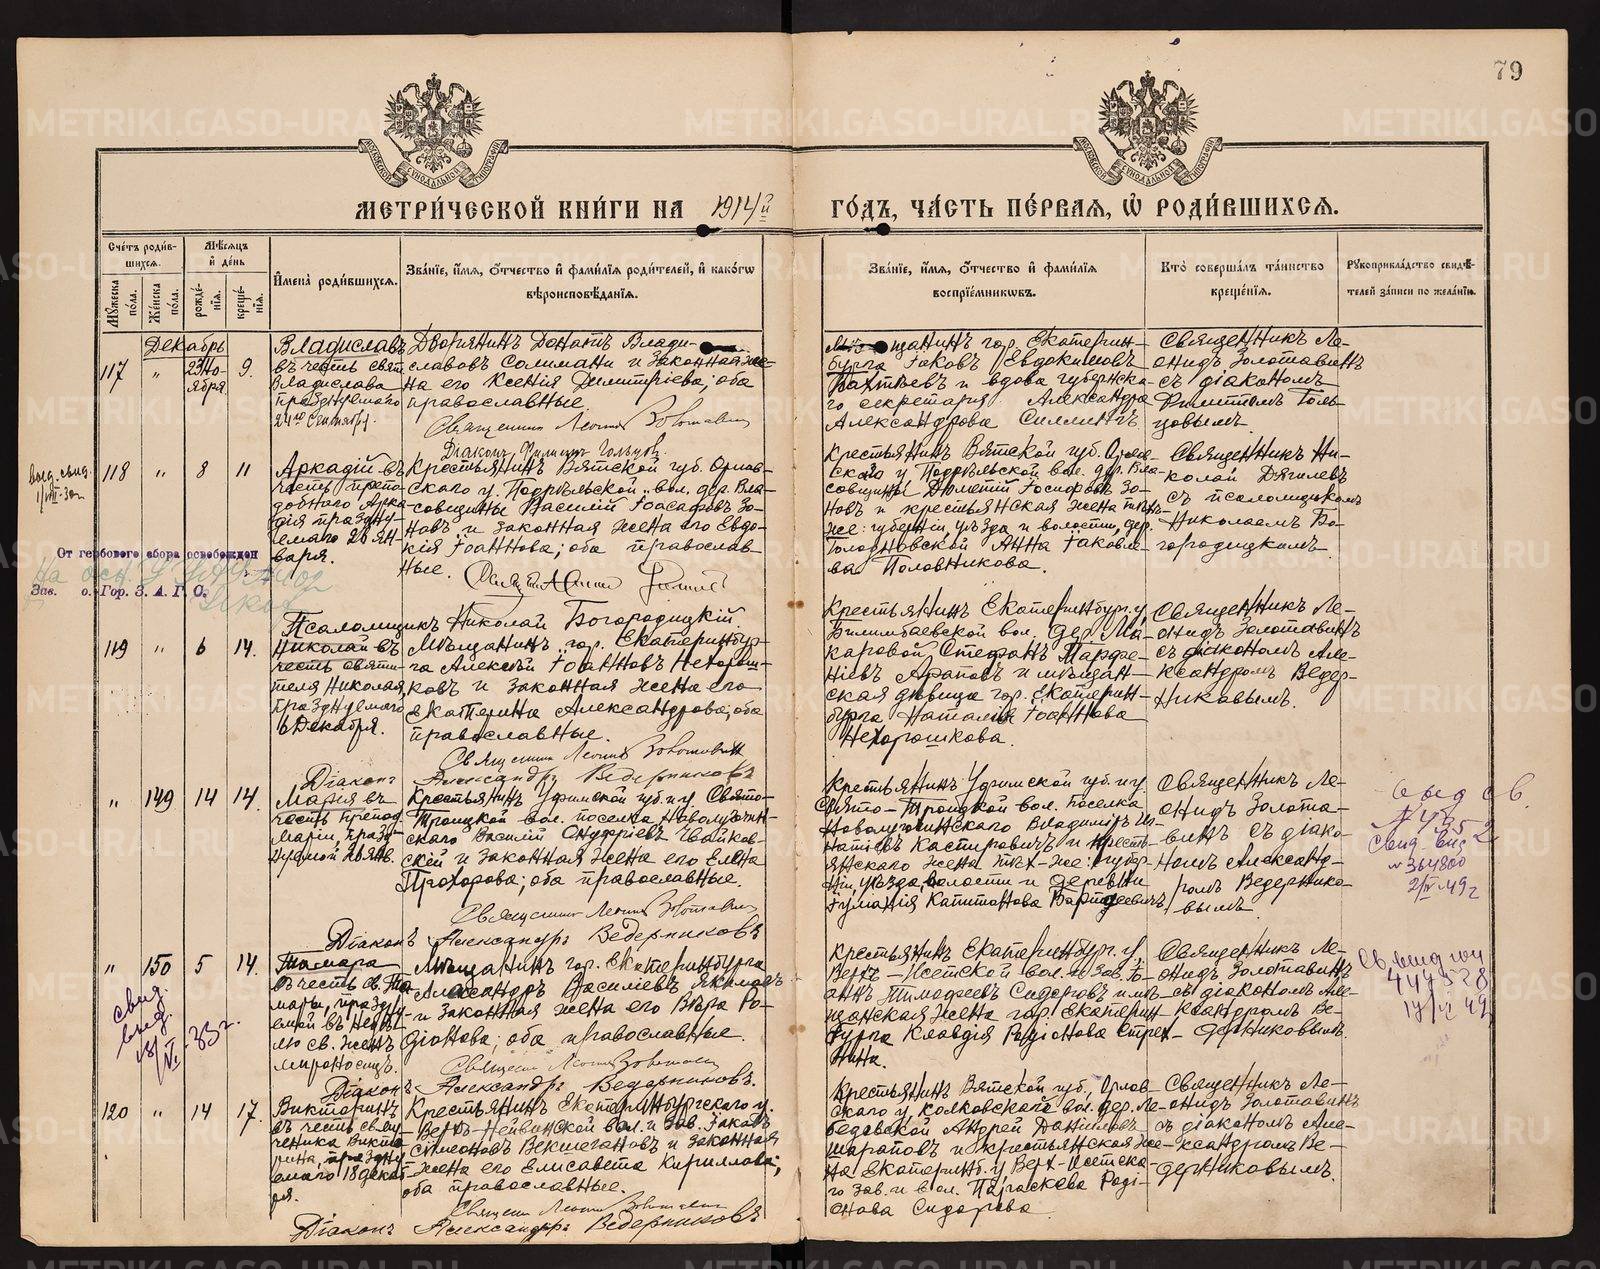 79
МЕТРИ́ЧЕСКОЙ КНИ́ГИ НА 1914й ГО́ДЪ, ЧА́СТЬ ПЕ́РВАЯ, Ѡ РОДИ́ВШИХСЯ.
Сче́тъ роди́в-
шихся.
Му́жеска по́ла.
Же́нска по́ла.
Мѣ́сяцъ и де́нь
рожде́нїя.
креще́нїя.
Имена̀ роди́вшихся.
Зва́нїе, и́мя, о́тчество и фами́лїя роди́телей, и како́гѡ
вѣроисповѣ́данїя.
Зва́нїе, и́мя, о́тчество и фами́лїя
воспрїе́мникѡвъ.
Кто̀ соверша́лъ та́инство
креще́нїя.
Рꙋкоприкла́дство свидѣ́-
телей за́писи по жела́нїю.
Декабрь
117 " 23 Но-
ября 9.
Владиславъ
въ честь свят.
Владислава
празднуемаго
24го Сентября.
Дворянинъ Донатъ Влади-
славовъ Солимани и законная же-
на его Ксенія Димитріева; оба
православные.
Священникъ Леонидъ Золотавинъ
Діаконъ Филиппъ Гольцовъ.
Мѣщанинъ гор. Екатерин-
бурга Іаковъ Евдокимовъ
и вдова губернска-
го секретаря Александра
Александрова
Священникъ Ле-
онидъ Золотавинъ
съ діакономъ
Филиппомъ Голь-
цовымъ.
выд. свид.
118 " 8 11
Аркадій въ
честь препо-
добнаго Арка-
дія праздну-
емаго 26 Ян-
варя.
Крестьянинъ Вятской губ. Орлов-
скаго у. Подрѣльской вол. дер. Вла-
совщины Василій Іоасафовъ Зо-
новъ и законная жена его Евдо-
кія Іоаннова; оба православ-
ные.
Псаломщикъ Николай Богородицкій.
Крестьянинъ Вятской губ. Орлов-
скаго у Подрѣльской вол. дер. Вла-
совщины Зо-
новъ и крестьянская жена тѣхъ-
же: губерніи, уѣзда и волости, дер.
Голодновской Анна Іаковле-
ва Половникова.
Священникъ Ни-
колай Дягилевъ
съ псаломщикомъ
Николаемъ Бо-
городицкимъ.
От гербового сбора освобожден
Зав. о. Гор. З. А. Г. С.
119 " 6 14.
Николай въ
честь святи-
теля Николая,
празднуемаго
6 Декабря.
Мѣщанинъ гор. Екатеринбур-
га Алексѣй Іоанновъ Нехорош-
ковъ и законная жена его
Екатерина Александрова; оба
православные.
Священникъ Леонидъ Золотавинъ
Діаконъ Александръ Ведерниковъ
Крестьянинъ Екатеринбург. у.
Билимбаевской вол. дер. Ма-
каровой Стефанъ Марфе-
ніевъ Араповъ и мѣщан-
ская дѣвица гор. Екатерин-
бурга Наталія Іоаннова
Нехорошкова.
Священникъ Ле-
онидъ Золотавинъ
съ діакономъ Але-
ксандромъ Ведер-
никовымъ.
" 149 14 14.
Марія въ
честь препод.
Маріи, празд-
нуемой 26 Янв.
Крестьянинъ Уфимской губ. и у. Свято-
Троицкой вол. поселка
Василій Онуфріевъ Чайков-
скій и законная жена его Елена
Прохорова; оба православные.
Священникъ Леонидъ Золотавинъ
Діаконъ Александръ Ведерниковъ
Крестьянинъ Уфимской губ. и у.
Свято-Троицкой вол. поселка
Владиміръ Иг-
натіевъ Кастировичъ и кресть-
янскаго жена тѣхъ-же: губер-
ніи, уѣзда, волости и деревни
Капитонова
Священникъ Ле-
онидъ Золота-
винъ съ діако-
номъ Александ-
ромъ Ведернико-
вымъ.
выд св.
№ 364800
" 150 5 14.
Тамара
въ честь св. Та-
мары, праздну-
емой въ недѣ-
лю св. женъ
мироносицъ.
Мѣщанинъ гор. Екатеринбурга
Александръ Василіевъ Якимовъ
и законная жена его Вѣра Ро-
діонова; оба православные.
Священникъ Леонидъ Золотавинъ
Діаконъ Александръ Ведерниковъ.
Крестьянинъ Екатеринбург. у.
Верхъ-Исетской вол. и зав. Іо-
аннъ Тимофеевъ Сидоровъ и мѣ-
щанская жена гор. Екатерин-
бурга Клавдія Родіонова Стреж-
нина.
Священникъ Ле-
онидъ Золотавинъ
съ діакономъ Але-
ксандромъ Ве-
дерниковымъ.
свид.
выд.
18/VI-33г.
447528
120 " 14 17.
Викторинъ
въ честь свящ-
ченика Викто-
рина, праздну-
емаго 18 декаб-
ря.
Крестьянинъ Екатеринбургскаго у.
Верхъ-Нейвинской вол. и зав. Іаковъ
Симеоновъ Векшегановъ и законная
жена его Елисавета Кириллова;
оба православные.
Священникъ Леонидъ Золотавинъ
Діаконъ Александръ Ведерниковъ
Крестьянинъ Вятской губ. Орлов-
скаго у. Колковскаго вол. дер. Ле-
бедевской Андрей Даниловъ
Шараповъ и крестьянская же-
на Екатеринб. у Верх-Исетска-
го зав. и вол. Параскева Роді-
онова Сидорова.
Священникъ Ле-
онидъ Золотавинъ
съ діакономъ Але-
ксандромъ Ве-
дерниковымъ.
METRIKI.GASO-URAL.RU